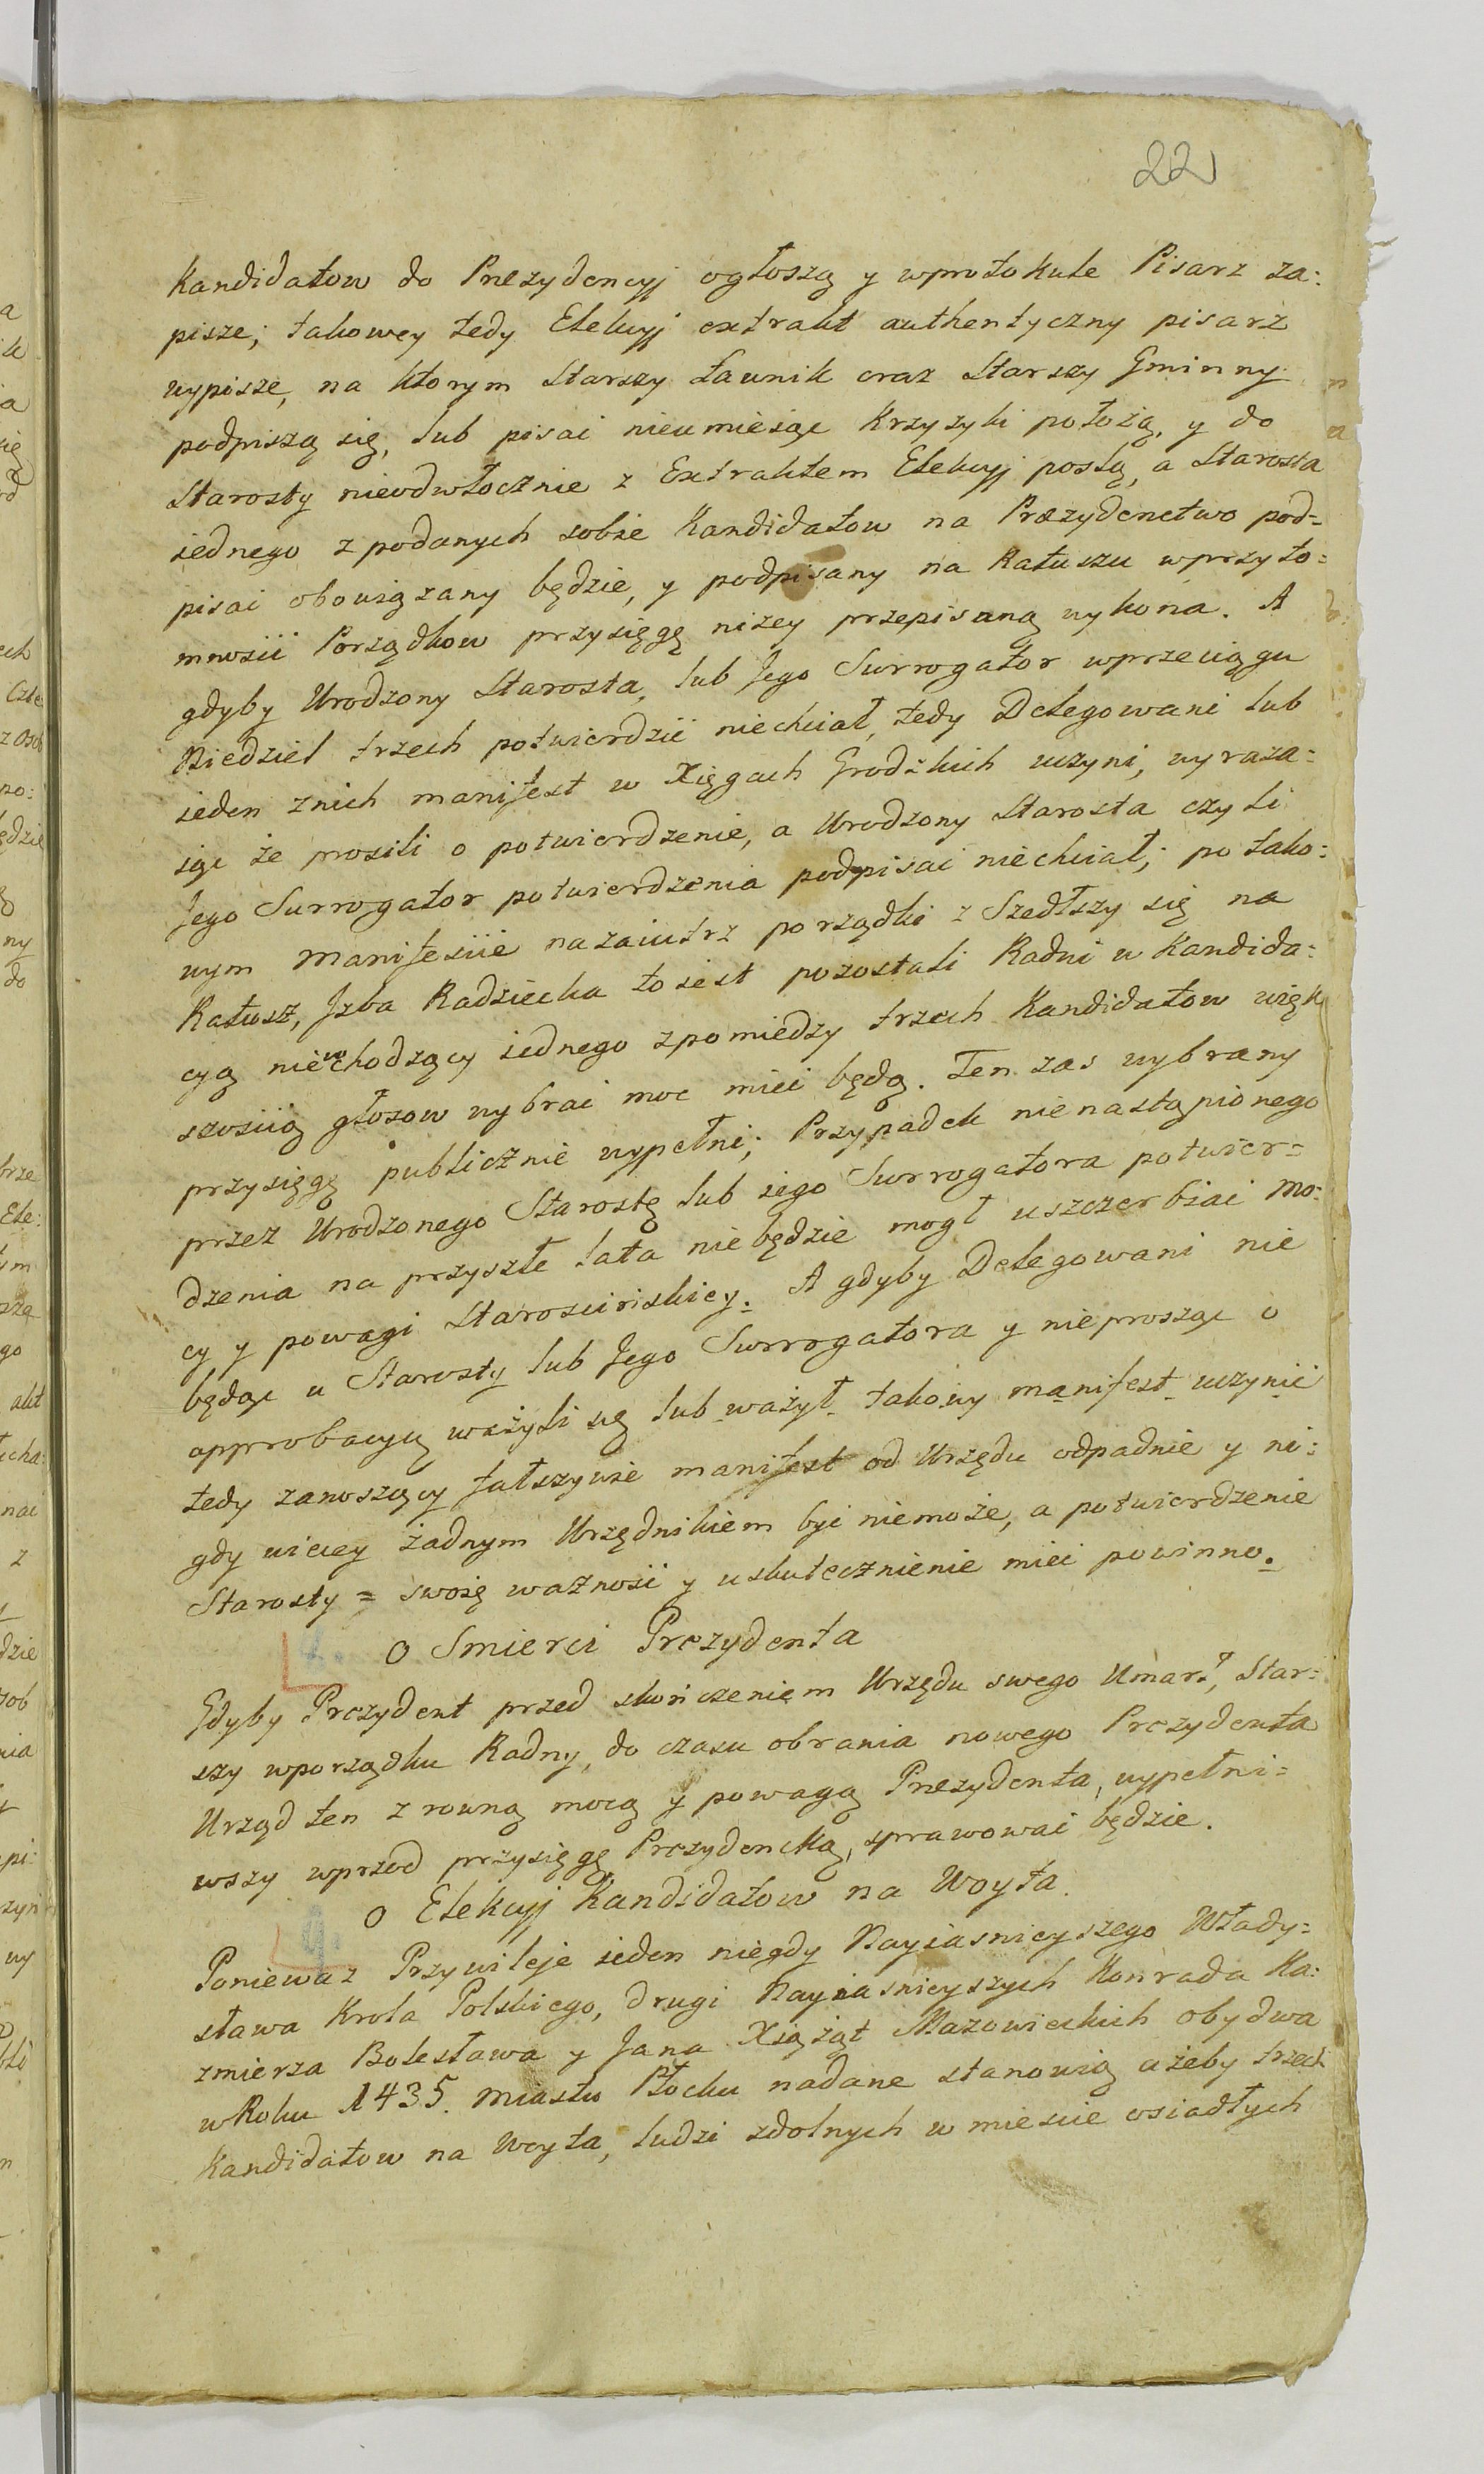 22
Kandidatow do Prezydencyj ogłoszą y wprotokule Pisarz za:
pisze; takowey tedy Elekcyj extrakt authentyczny pisarz
wypisze, na ktorym Starszy Ławnik oraz Starszy Gminny
podpiszą się, lub pisać nieumieiąc Krzyzyki położą, y do
Starosty nieodwłocznie z Extraktem Elekcyj poslą, a Starosta
iednego z podanych sobie Kandidatow na Prezydenctwo pod=
pisać obowiązany będzie, y podpisany na Ratuszu wprzyto=
mności Porządkow przysięgę niżey przepisaną wykona. A
gdyby Urodzony Starosta, lub Jego Surrogator wprzeciągu
Niedziel trzech potwierdzić niechciał, tedy Delegowani lub
ieden znich manifest w Xięgach Grodzkich uczyni, wyraza=
iąc że prosili o potwierdzenie, a Urodzony Starosta czyli
Jego Surrogator potwierdzenia podpisać niechciał; po tako:
wym Manifeście nazaiutrz porządki z Szedłszy się na
Ratusz, Jzba Radziecka to iest pozostali Radni w Kandida:
cyą niewchodzący iednego zpomiedzy trzech Kandidatow więk
szością głosow wybrać moc mieć będą. Ten zas wybrany
przysięgę publicznie wypełni; Przypadek nienastąpionego
przez Urodzonego Starostę lub iego Surrogatora potwier=
dzenia na przyszłe lata niebędzie mogł uszczerbiać mo:
cy y powagi Starościńskiey. A gdyby Delegowani nie
będąc u Starosty lub Jego Surrogatora y nieprosząc o
approbacyą ważyli się lub ważył takowy manifest uczynić
tedy zanoszący fałszywie manifest od Urzędu odpadnie y ni:
gdy więcey żadnym Urzędnikiem być niemoże, a potwierdzenie
Starosty = swoię ważność y uskutecznienie mieć powinno.
O Smierci Prezydenta
Gdyby Prezydent przed skończeniem Urzędu swego Umarł, Star=
szy wporządku Radny, do czasu obrania nowego Prezydenta
Urząd ten z rowną mocą y powagą Prezydenta, wypełni=
wszy wprzod przysięgę Prezydencką, sprawować będzie.
O Elekcyj Kandidatow na Woyta.
Poniewaz Przywileje ieden niegdy Nayiasnieyszego Włady=
sława Krola Polskiego, drugi Nayiasnieyszych Konrada Ka:
zmierza Bolesława y Jana Xiążąt Mazowieckich obydwa
w Roku 1435. Miastu Płocku nadane stanowią ażeby trzech
Kandidatow na Woyta, ludzi zdolnych w miescie osiadłych